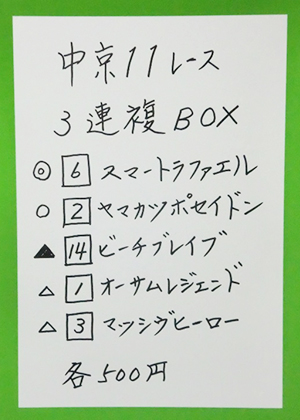 中京11レース
3連複BOX
◎ 6 スマートラファエル
○ 2 ヤマカツポセイドン
▲ 14 ビーチブレイブ
△ 1 オーサムレジェンド
△ 3 マッシヴヒーロー
各500円